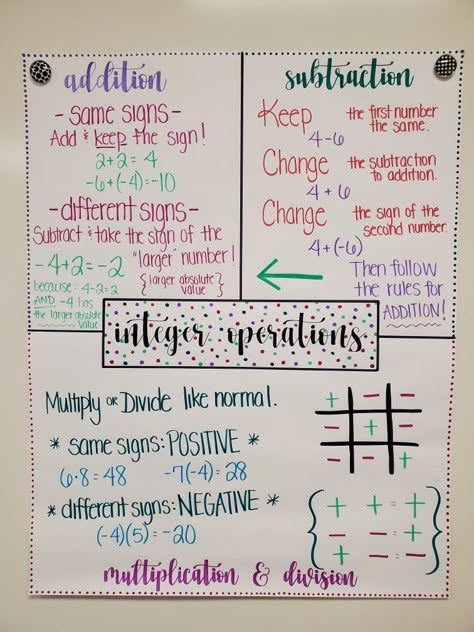 addition
- same signs -
Add & keep the sign!
2+2=4
-6+(-4)=-10
- different signs -
Subtract & take the sign of the
"larger" number!
{larger absolute value}
-4+2=-2
because: 4-2=2
AND -4 has
the larger absolute
value
subtraction
Keep the first number the same.
4-6
Change the subtraction to addition.
4+6
Change the sign of the second number.
4+(-6)
←
Then follow
the rules for
ADDITION!
integer operations
Multiply or Divide like normal.
* same signs: POSITIVE *
6·8=48 -7(-4)=28
* different signs: NEGATIVE *
(-4)(5)=-20
+ - -
- + -
- - +
+ + = +
- - = +
+ - = -
multiplication & division